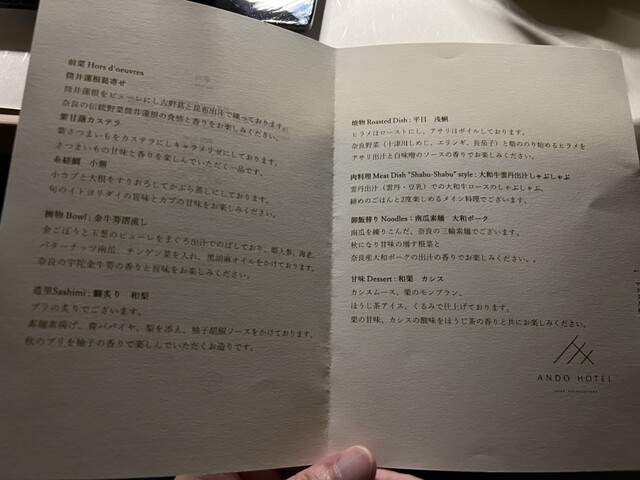 前菜 Hors d'oeuvres
筒井蓮根葛寄せ
筒井蓮根をピューレにし吉野葛と昆布出汁で練っております。
奈良の伝統野菜筒井蓮根の食感と香りをお楽しみください。
紫甘藷カステラ
紫さつまいもをカステラにしキャラメリゼにしております。
さつまいもの甘味と香りを楽しんでいただく一品です。
糸縒鯛 小蕪
小カブと大根をすりおろしてかぶら蒸しにしております。
旬のイトヨリダイの旨味とカブの甘味をお楽しみください。
椀物 Bowl : 金牛蒡摺流し
金ごぼうと玉葱のピューレをまぐろ出汁でのばしており、姫人参、海老、
バターナッツ南瓜、チンゲン菜を入れ、黒胡麻オイルをかけております。
奈良の宇陀金牛蒡の香りと旨味をお楽しみください。
造里 Sashimi : 鰤炙り 和梨
ブリの炙りでございます。
素麺素揚げ、青パパイヤ、梨を添え、柚子胡椒ソースをかけております。
秋のブリを柚子の香りで楽しんでいただくお造りです。
焼物 Roasted Dish : 平目 浅蜊
ヒラメはローストにし、アサリはボイルしております。
奈良野菜（十津川しめじ、エリンギ、長茄子）と脂ののり始めるヒラメを
アサリ出汁と白味噌のソースの香りでお楽しみください。
肉料理 Meat Dish "Shabu-Shabu" style : 大和牛雲丹出汁しゃぶしゃぶ
雲丹出汁（雲丹・豆乳）での大和牛ロースのしゃぶしゃぶ、
締めのごはんと2度楽しめるメイン料理でございます。
御飯替り Noodles : 南瓜素麺 大和ポーク
南瓜を練りこんだ、奈良の三輪素麺でございます。
秋になり甘味の増す根菜と
奈良産大和ポークの出汁の香りでお楽しみください。.
甘味 Dessert : 和栗 カシス
カシスムース、栗のモンブラン、
ほうじ茶アイス、くるみで仕上げております。
栗の甘味、カシスの酸味をほうじ茶の香りと共にお楽しみください。
ANDO HOTEL